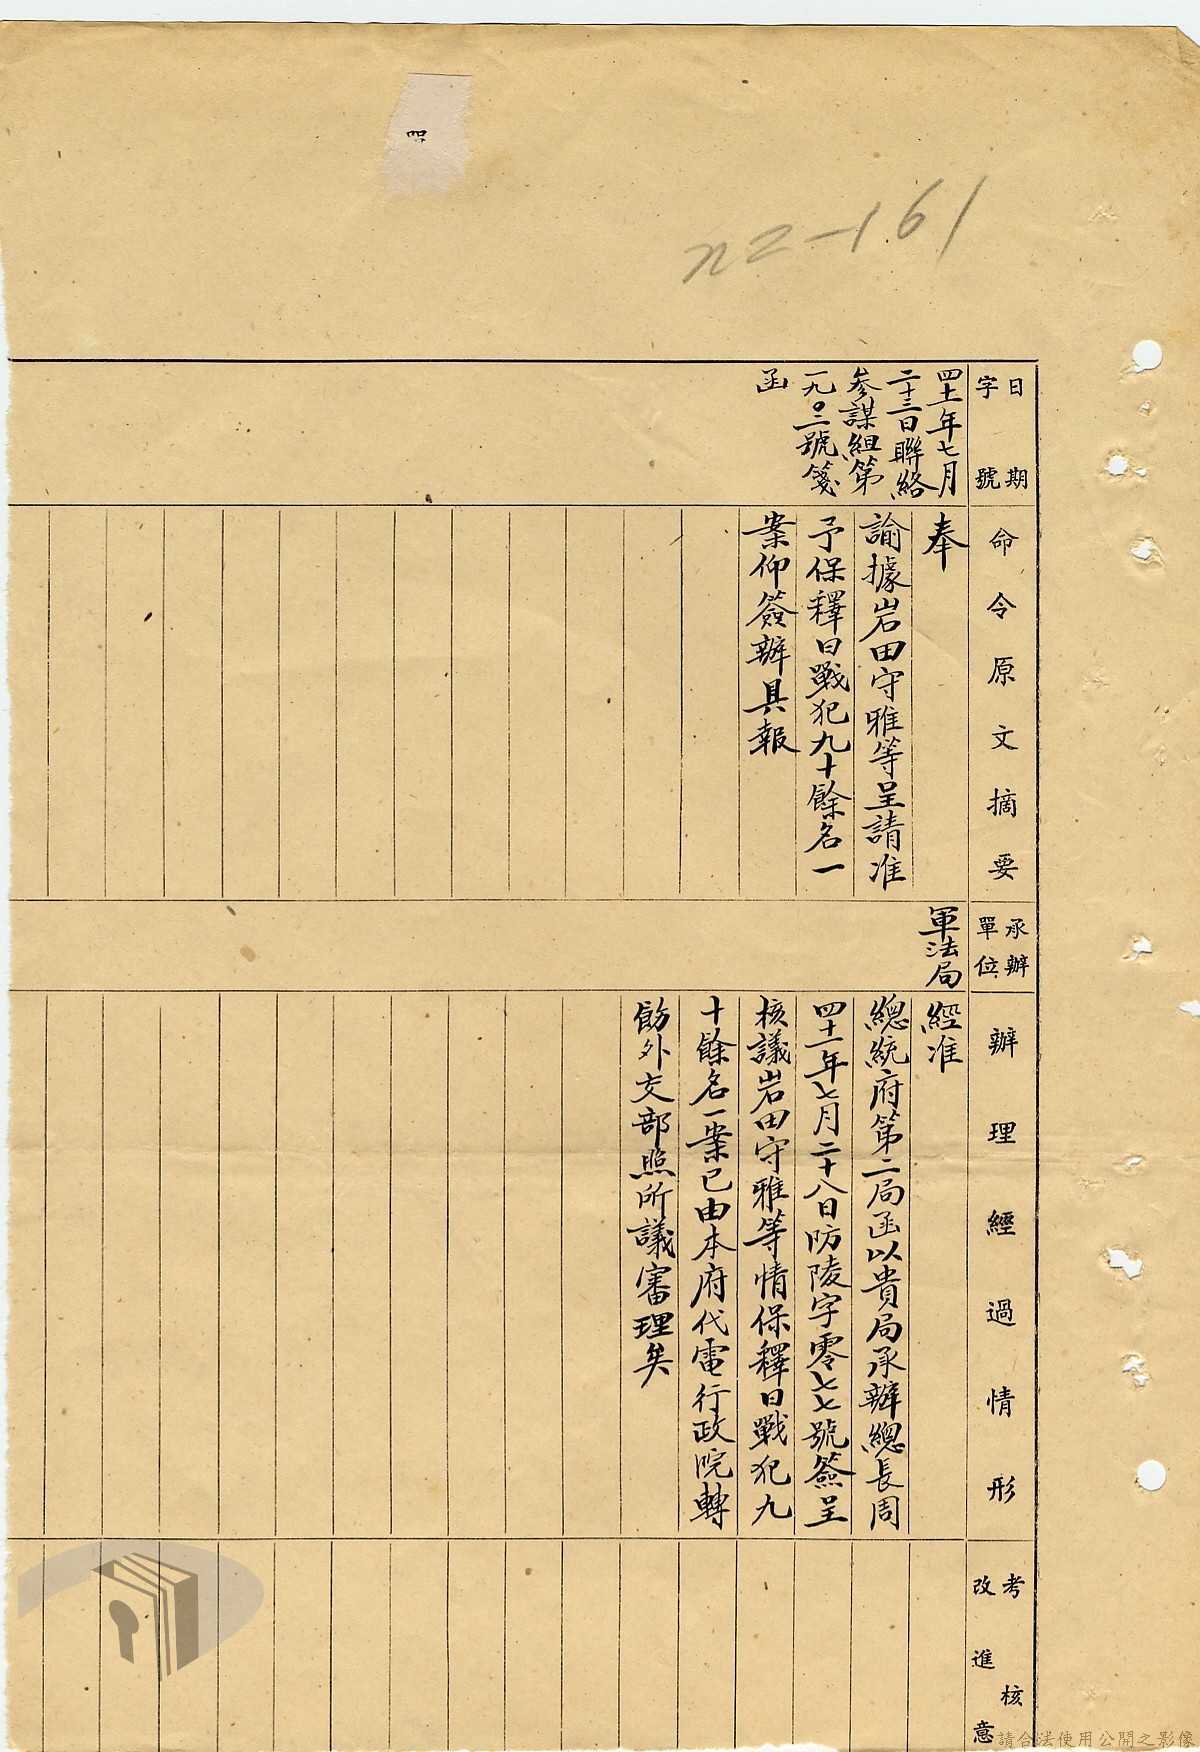 四
n2-161
日期
字號
命令原文摘要
承辦
單位
辦理經過情形
考核
改進意
四十一年七月
二十三日聯絡
參謀組第
一九〇三號箋
函
奉
諭據岩田守雅等呈請准
予保釋日戰犯九十餘名一
案仰簽辦具報
軍法局
經准
總統府第二局函以貴局承辦總長周
四十一年七月二十八日防陵字零七七號簽呈
核議岩田守雅等情保釋日戰犯九
十餘名一案已由本府代電行政院轉
飭外交部照所議審理矣
請合法使用公開之影像